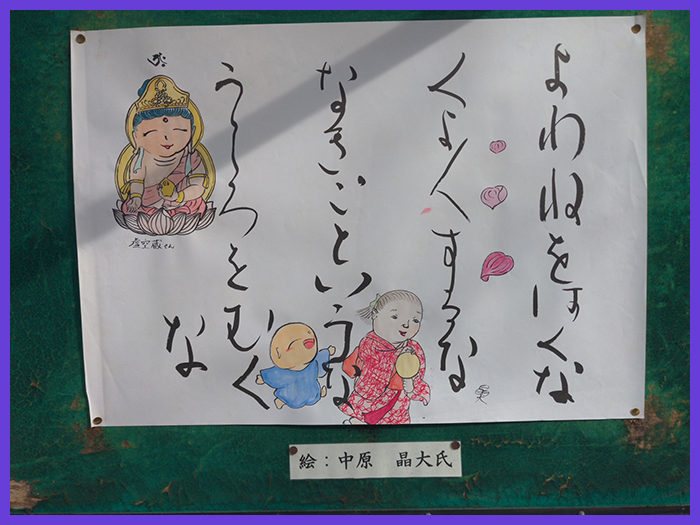 よわねをはくな
くよ〱するな
なきごというな
うしろをむく
な
虚空蔵さん
絵：中原　晶大氏